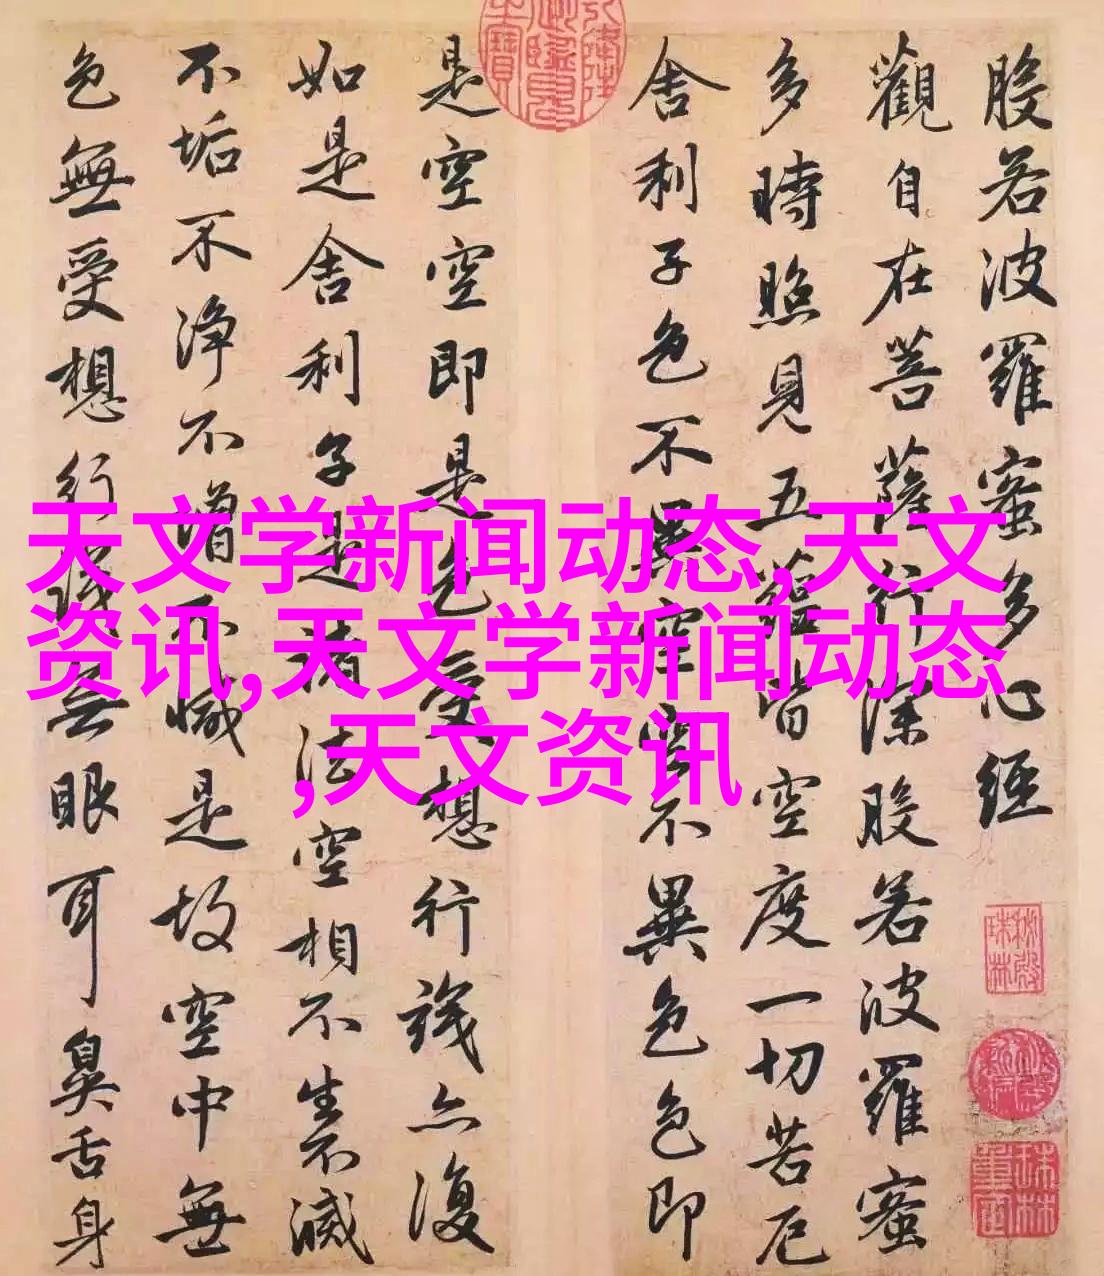 般若波羅蜜多心經
觀自在菩薩行深般若波羅蜜
多時照見五蘊皆空度一切苦厄
舍利子色不異空空不異色色即
是空空即是色受想行識亦復
如是舍利子是諸法空相不生不滅
不垢不净不增不減是故空中無
色無受想行識無眼耳鼻舌身
天文学新闻动态,天文
资讯,天文学新闻动态
,天文资讯